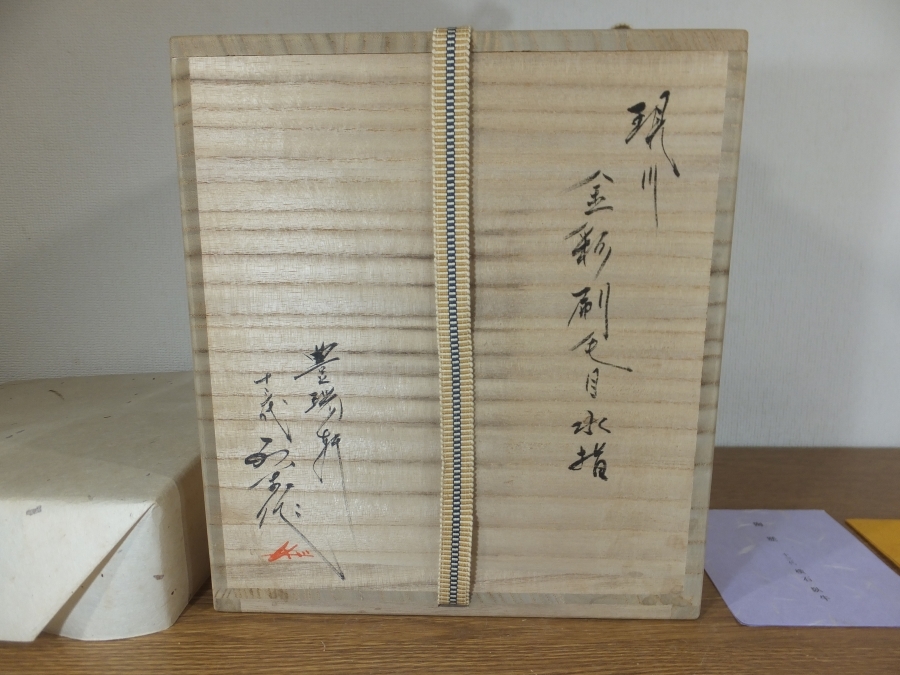 現川
金彩刷毛目水指
豊瑞軒
十三代